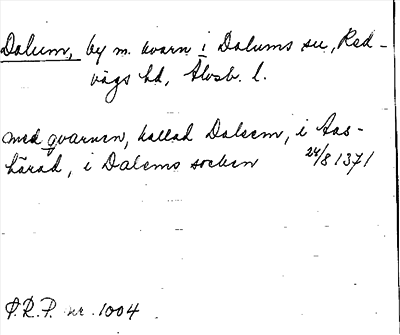 Dalum, by m. kvarn i Dalums sn, Red-
vägs hd, Älvsb. l.
med qvarnen, kallad Dalem, i Aas-
härad, i Dalems socken 24/8 1371
P.R.P. nr. 1004